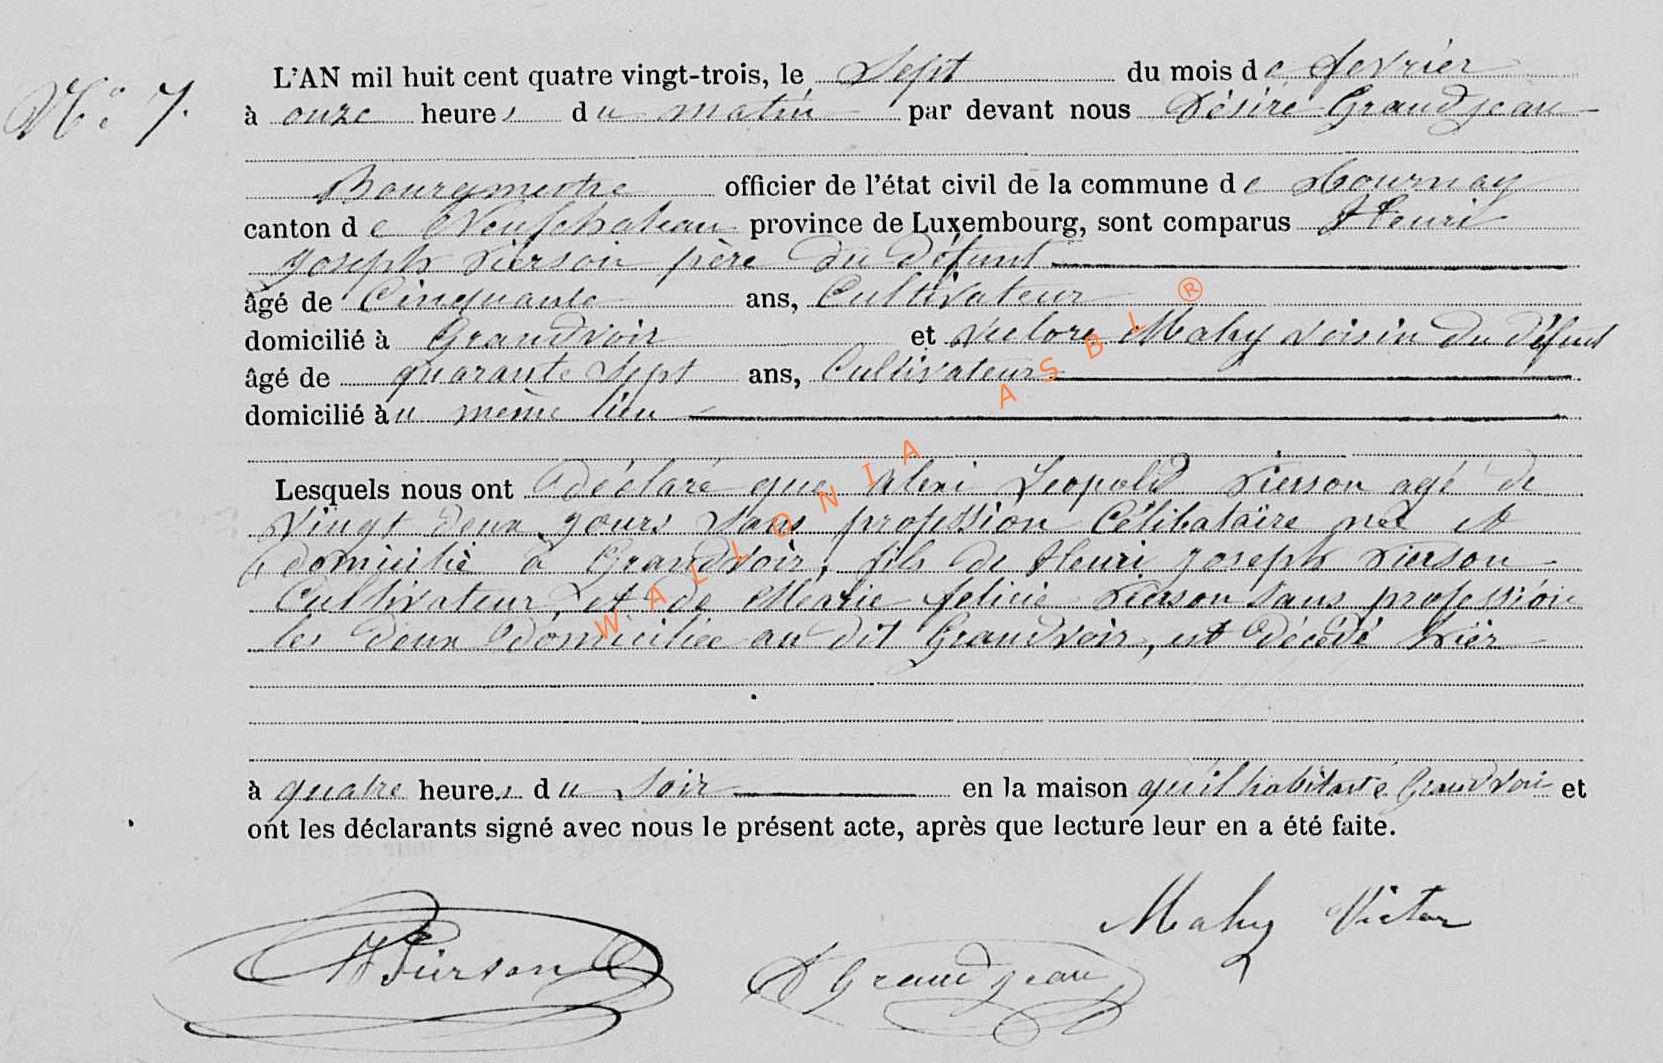 N° 7.
L'AN mil huit cent quatre vingt-trois, le Sept du mois de fevrier
à onze heures du matin par devant nous Désiré Grandjean
Bourgmestre officier de l'état civil de la commune de Tournay
canton de Neufchateau province de Luxembourg, sont comparus Henri
Joseph Pierson père du défunt
âgé de Cinquante ans, Cultivateur
domicilié à Grandvoir et Victore Mahy voisin du défunt
âgé de quarante Sept ans, Cultivateur
domicilié àu même lieu
Lesquels nous ont déclaré que Alexi Leopold Pierson agé de
vingt deux jours Sans profession Célibataire née et
domicilié à Grandvoir, fils de Henri Joseph Pierson
Cultivateur, et de Marie felicie Pierson Sans profession
les deux domiciliée au dit Grandvoir, est décédé hier
à quatre heures du soir en la maison qu'il habitait à Grandvoir et
ont les déclarants signé avec nous le présent acte, après que lecture leur en a été faite.
Mahy Victor
H Pierson
D Grandjean
WALLONIA ASBL ®